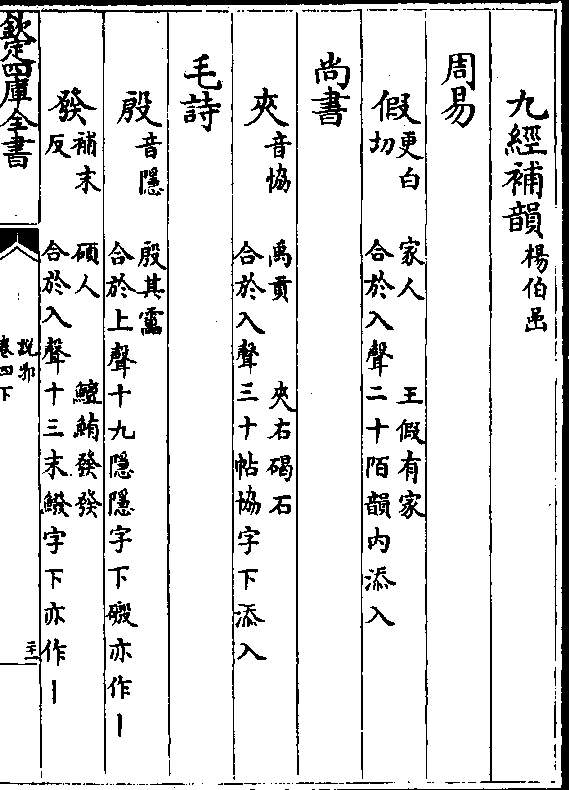 九經補韻楊伯嵒
周易
假更白切 家人 王假有家
合於入聲二十陌韻内添入
尚書
夾音協 禹貢 夾右碣石
合於入聲三十帖協字下添入
毛詩
殷音隱 殷其靁
合於上聲十九隱隱字下磤亦作丨
發補末反 碩人 鱣鮪發發
合於入聲十三末鱍字下亦作丨
欽定四庫全書
説郛
卷四下